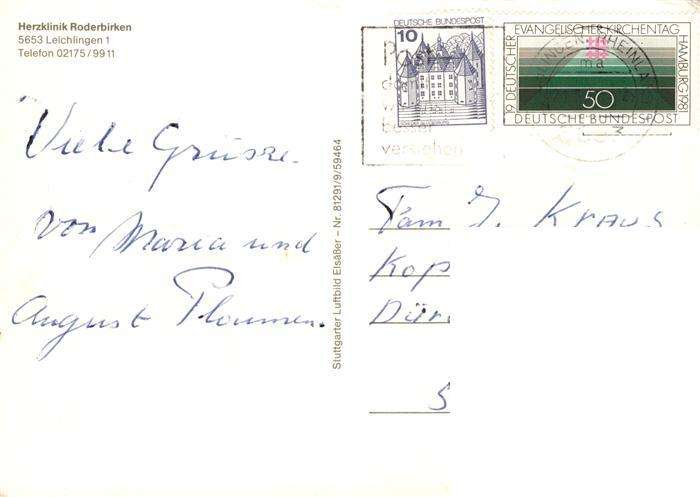 Herzklinik Roderbirken
5653 Leichlingen 1
Telefon 02175/9911
DEUTSCHE BUNDESPOST
10
19. DEUTSCHER EVANGELISCHER KIRCHENTAG HAMBURG 1981
50
DEUTSCHE BUNDESPOST
verstehen
Viele Grüsse.
von Maria und
August Ploumen.
Stuttgarter Luftbild Elsäßer – Nr. 81291/9/59464
Fam J. KRAUS
Kop
Dür
S